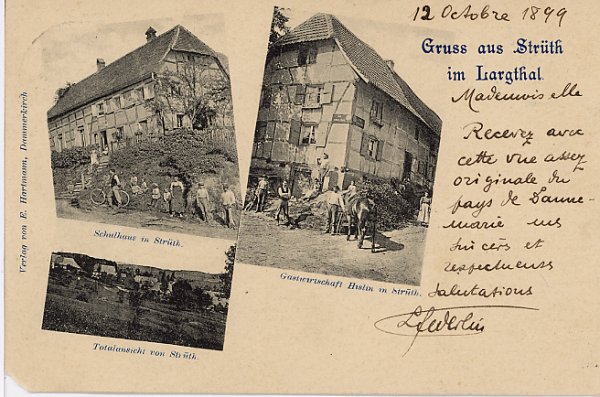 12 Octobre 1899
Gruss aus Strüth
im Largthal.
Mademoiselle
Recevez avec
cette vue assez
originale du
pays de Danne-
marie mes
sincers et
respectueuses
salutations
Verlag von E. Hartmann, Dammerkirch
Schulhaus in Strüth.
Gastwirtschaft Hislin in Strüth.
Totalansicht von Strüth.